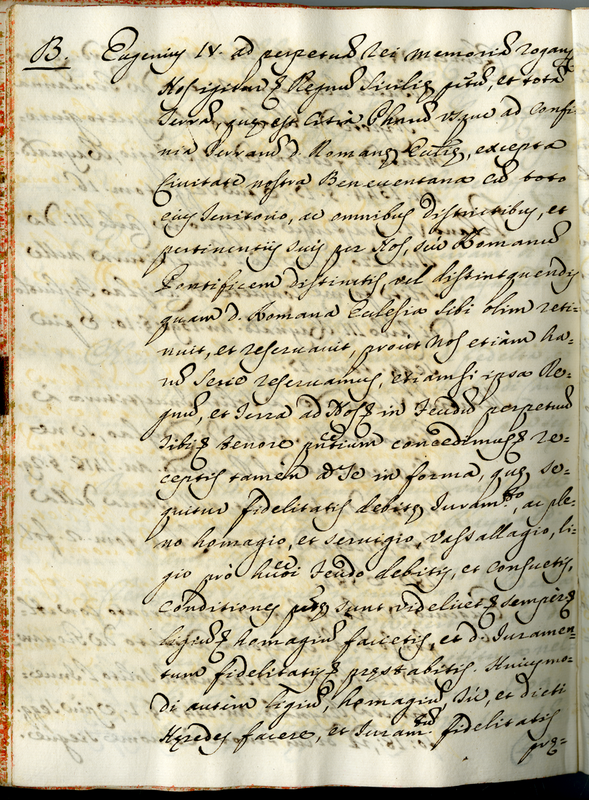 B. Eugenius IV. ad perpetuã Rei memoriã rogans
Nos igitur Regnũ Sicilię ptũ, et totã
Terrã, quę est Citra Pharũ usque ad Confi=
nia Terrarũ d. Romanę Eccłię, excepta
Civitate nostra Beneventana cũ toto
eius Territorio, ac omnibus districtibus, et
pertinentijs suis per Nos, seù Romanũ
Pontificem distinctis, vel distinguendis
quam d. Romana Ecclesia sibi olim reti=
nuit, et reservavit, prout Nos etiàm ha=
rũ serie reservamus, etiamsi ipsa Re=
gnũ, et Terrã ad Nos in Feudũ perpetuũ
Tibi tenore pñtium concedimus re=
ceptis tamen à Te in forma, quę se=
quitur fidelitatis debitę Juram.to, ac ple=
no homagio, et servitgio, Vassallagio, li=
gio prò hũodi Feudo debitis, et consuetis,
Conditiones sunt videlicet semper
ligiũ homagiũ facietis, et d. Juramen=
tum fidelitatis pręstabitis. Huiusmo=
di autèm ligiũ, homagiũ Tu, et dicti
Hęredes facere, et Juram.tũ fidelitatis
prę=